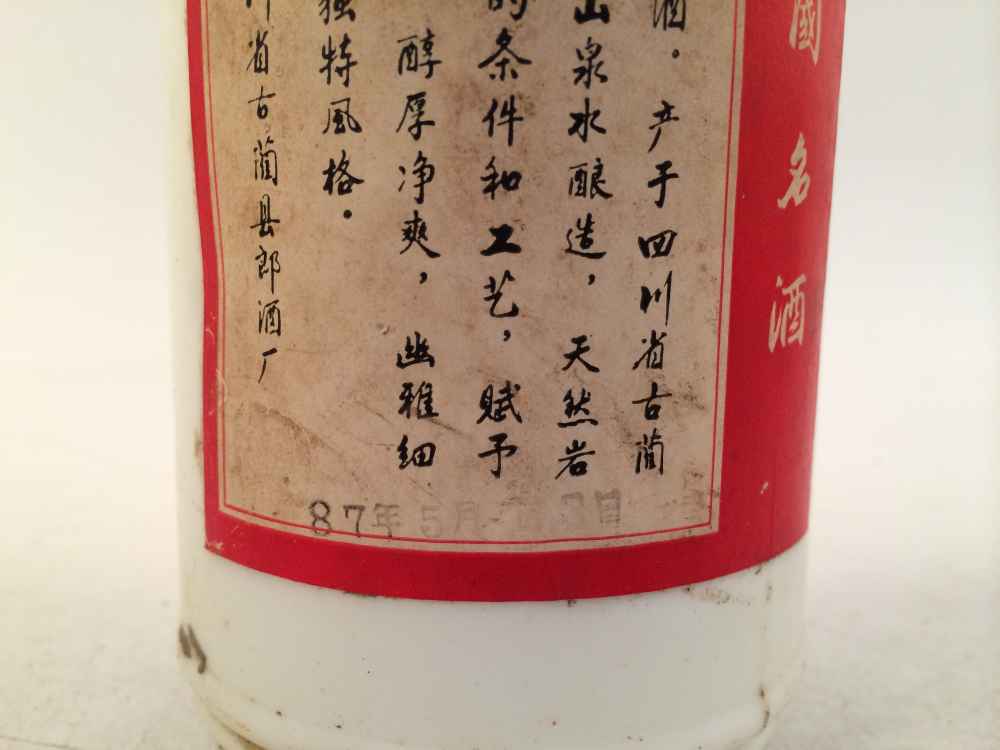 國名酒
酒。产于四川省古蔺
山泉水酿造，天然岩
的条件和工艺，赋予
醇厚净爽，幽雅细
独特风格.
川省古蔺县郎酒厂
87年5月 日